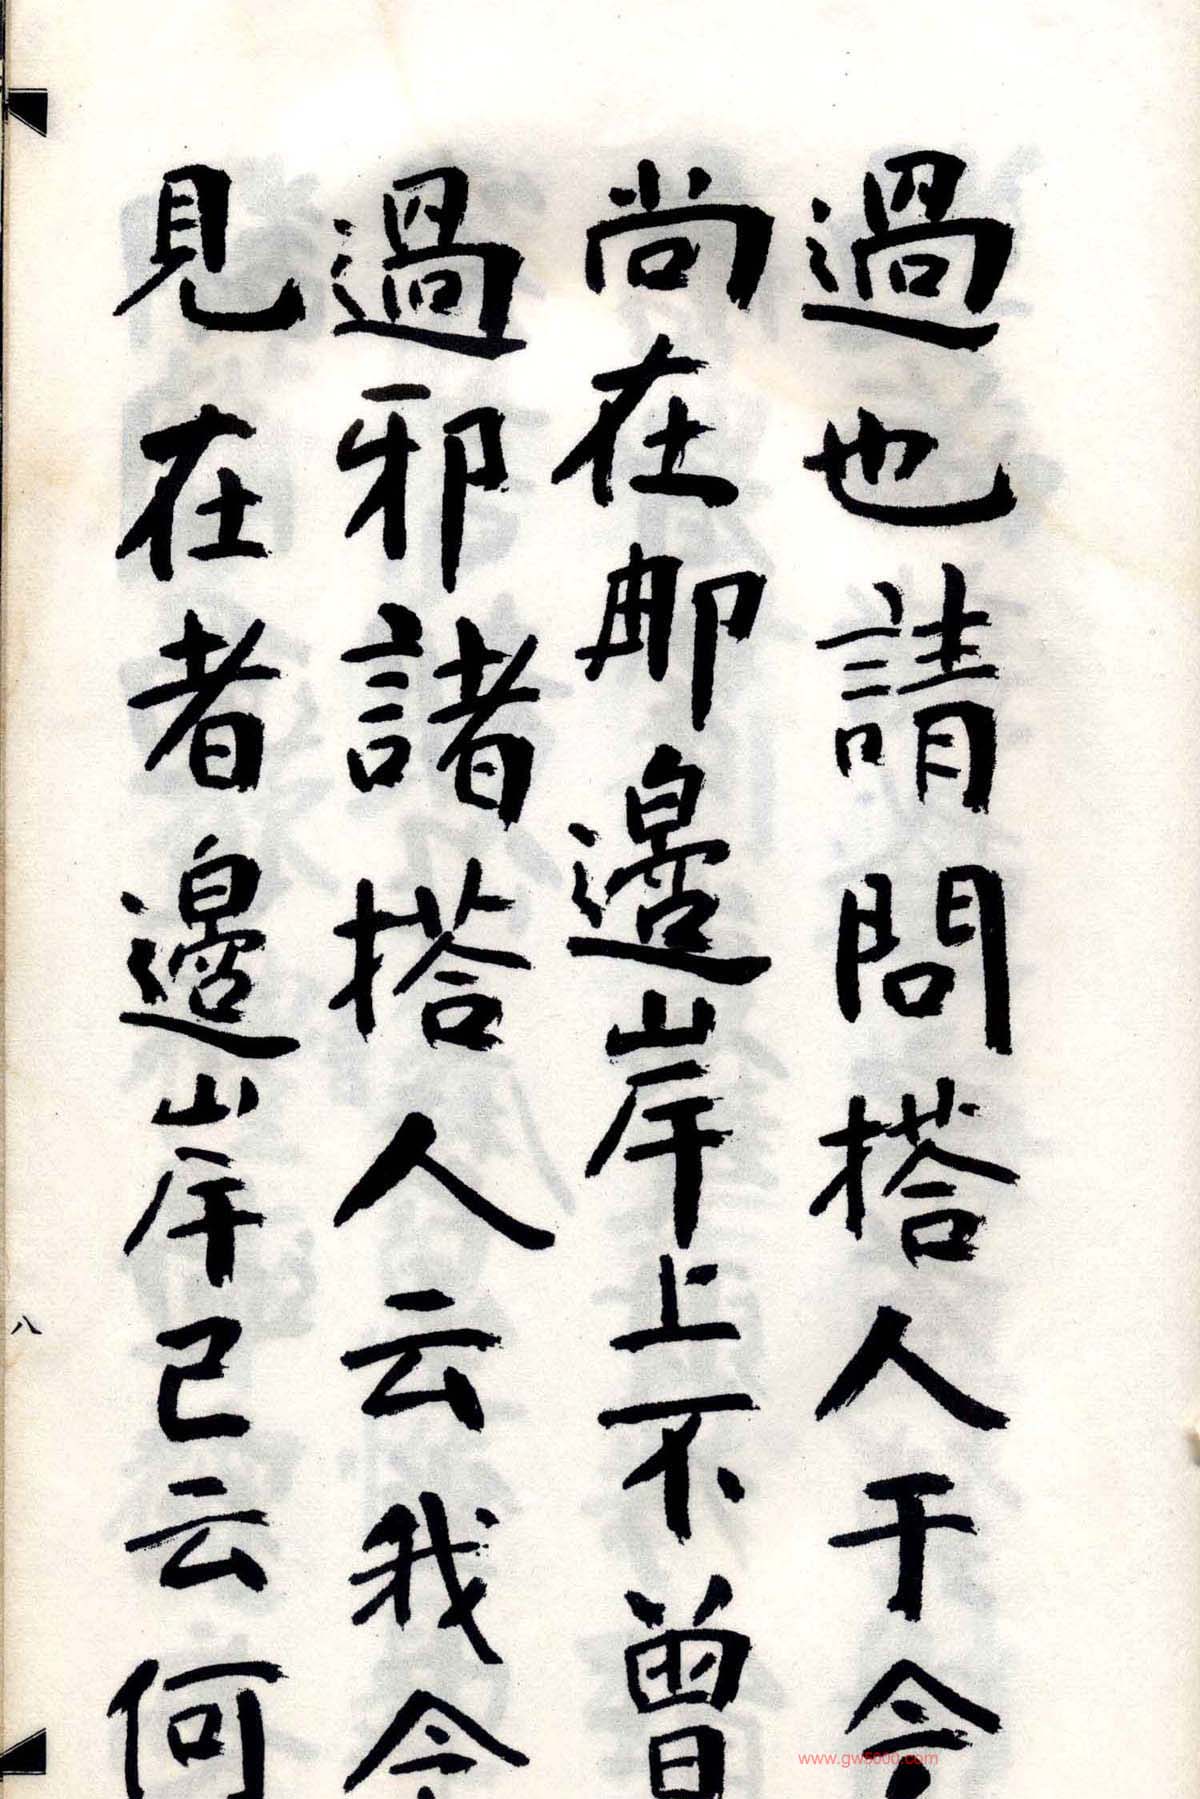 過也請問搭人于今
尚在那邊岸上不曾
過邪諸搭人云我今
見在者邊岸已云何
八
www.gw5000.com